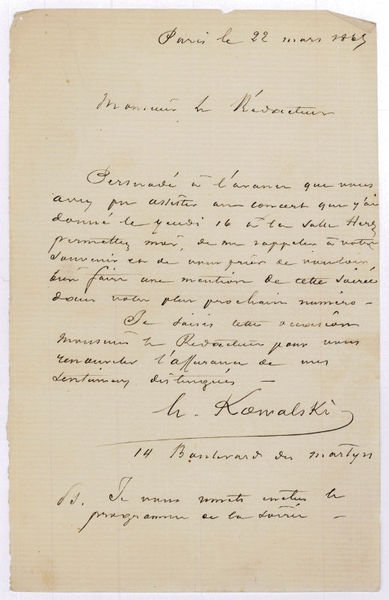 Paris le 22 mars 1865
Monsieur le Rédacteur
Persuadé à l'avance que vous
avez pu assister au concert que j'ai
donné le jeudi 16 à la salle Herz
permettez moi, de me rappeler à votre
souvenir et de vous prier de vouloir
bien faire une mention de cette soirée
dans votre plus prochain numéro -
Je saisis cette occasion
Monsieur le Rédacteur pour vous
renouveler l'assurance de mes
sentimens distingués -
h. Kowalski
14 Boulevard des martyrs
Ps. Je vous mets inclus le
programme de la soirée -